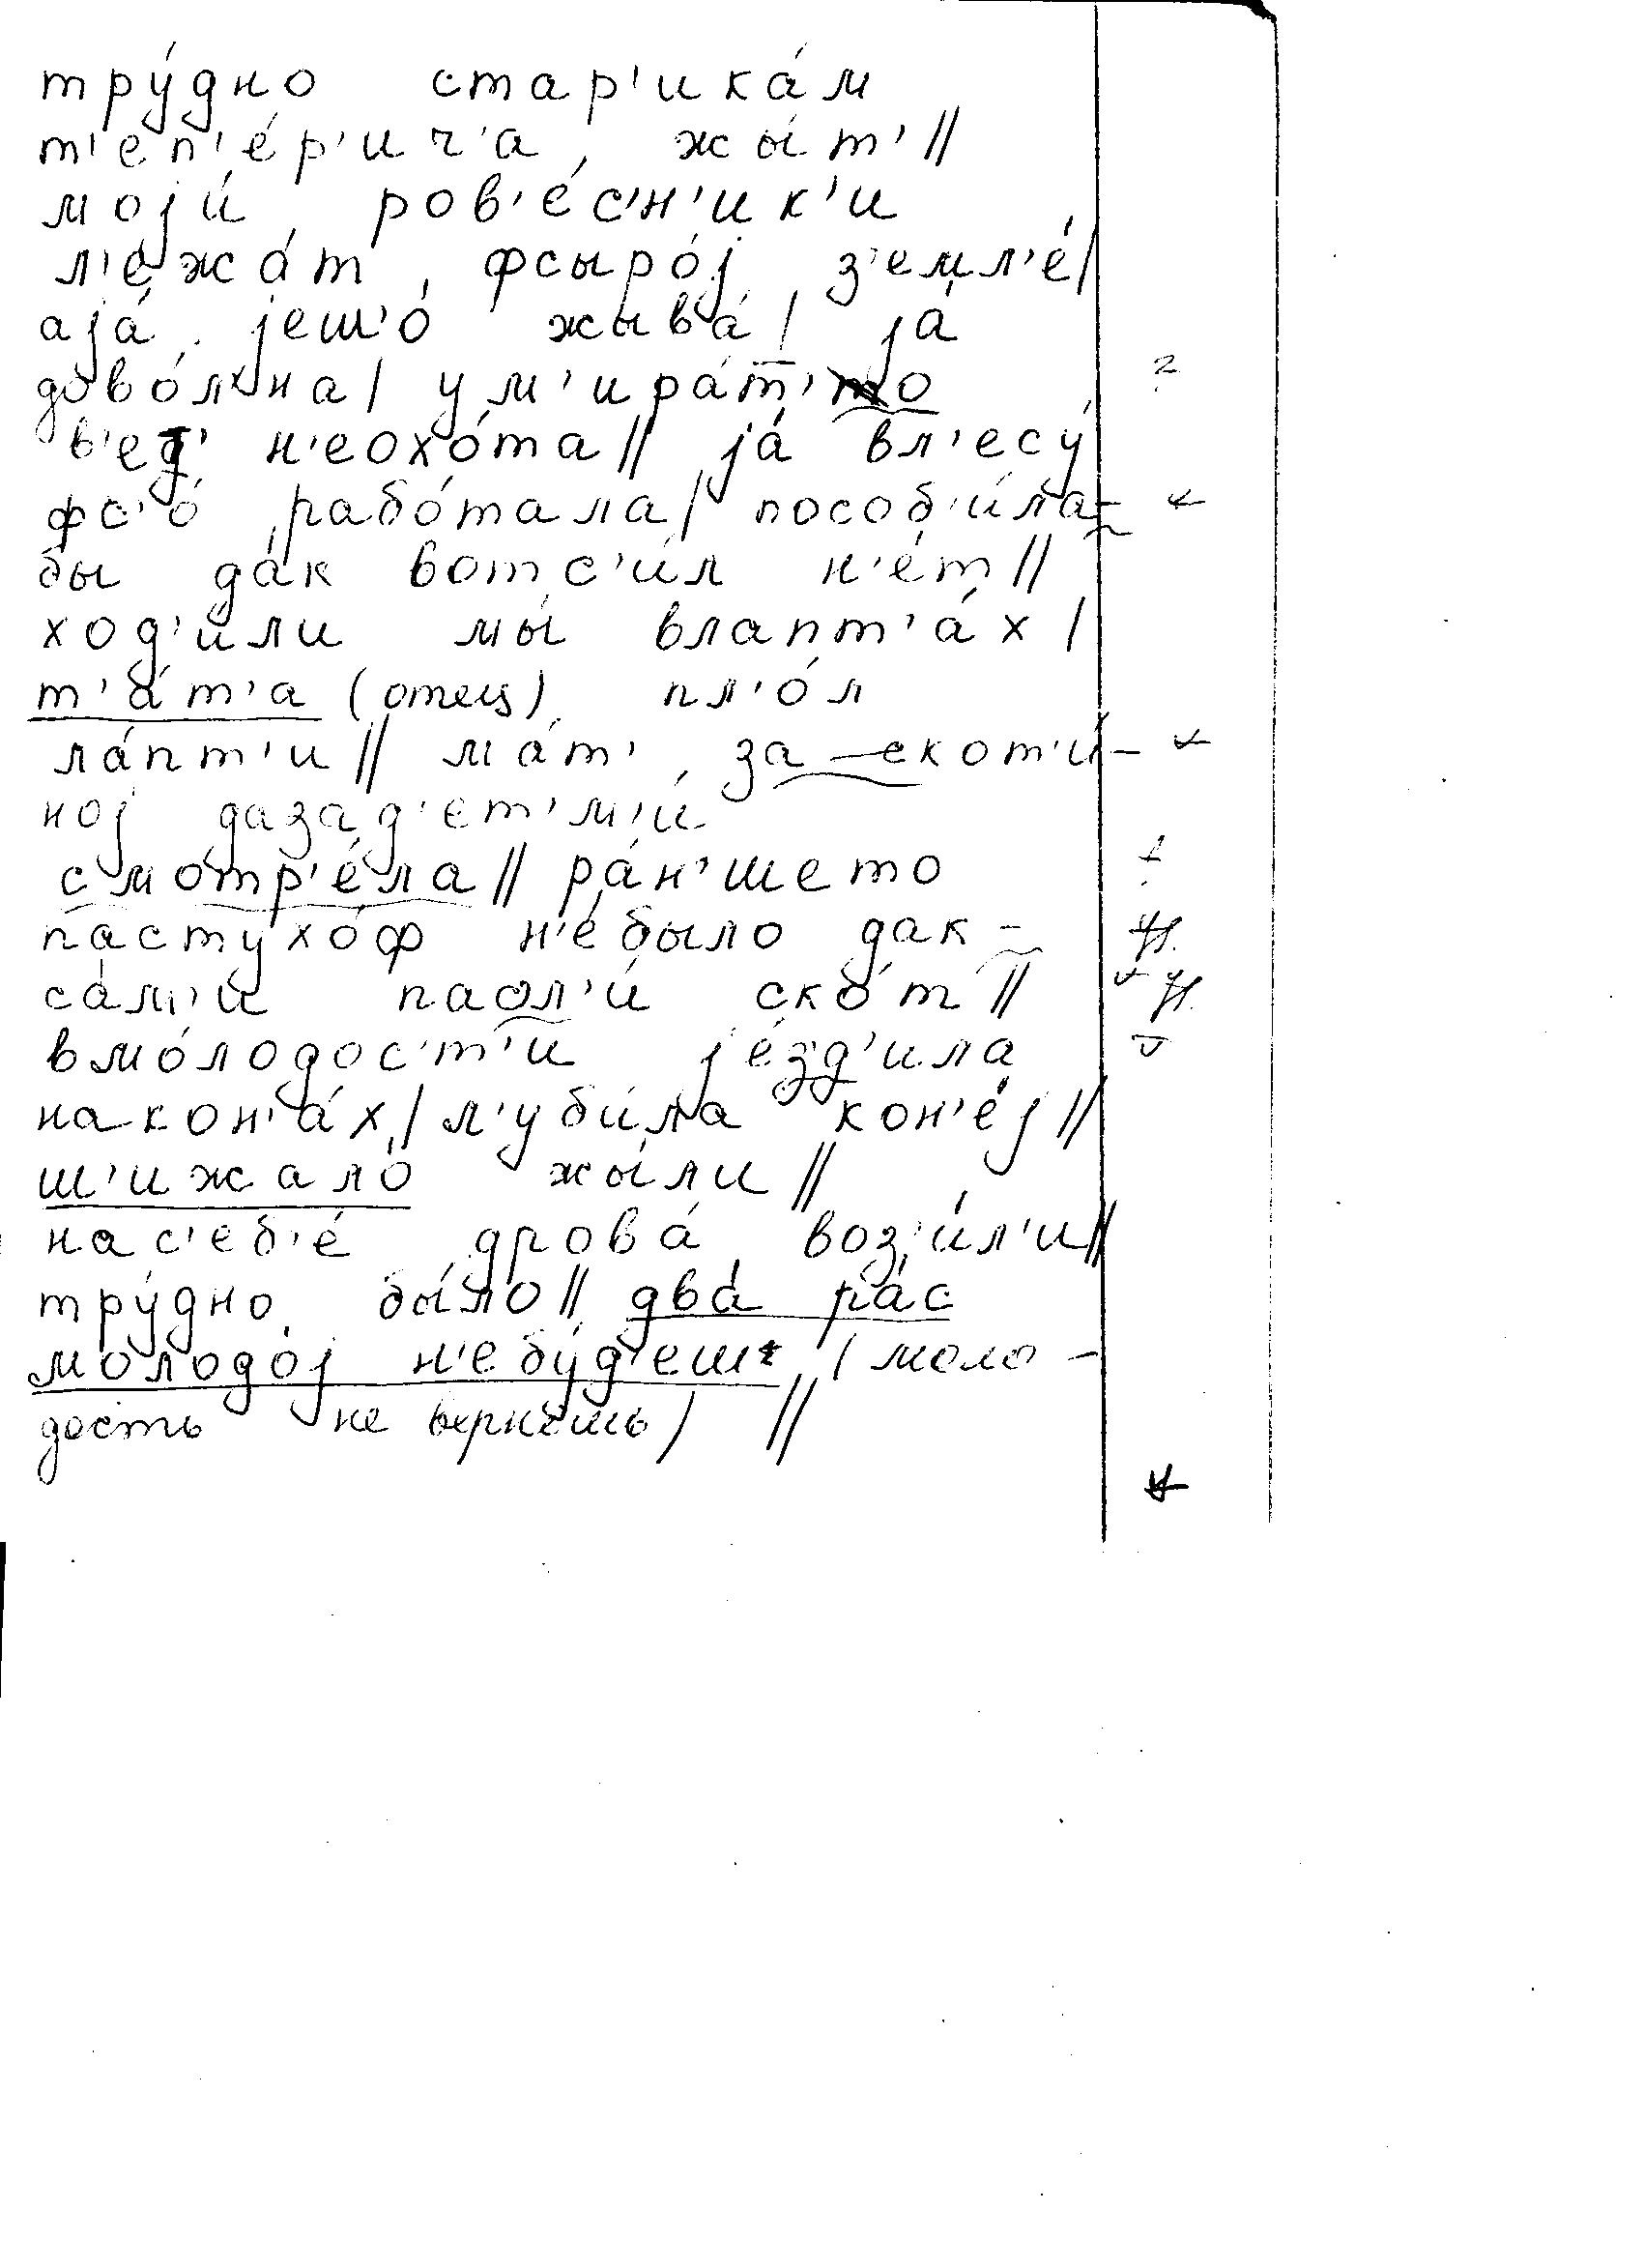 тру́дно стар'ика́м
т'еп'е́р'ич'а жы́т'//
моjи́ ров'е́с'н'ик'и
л'ежа́т фсыро́j з'емл'е́/
аjа́ jеш'о́ жыва́/ jа́
дово́л'на/ ум'ира́т'то
в'ет' н'еохо́та// jа́ вл'есу́
фс'о́ рабо́тала/ пособ'и́ла-
бы да́к вотс'и́л н'е́т//
ход'и́ли мы́ влапт'а́х/
т'а́т'а (отец) пл'о́л
ла́пт'и// ма́т' за скот'и́-
ноj даза́д'ет'м'и́
смотр'е́ла// ра́н'шето
пастухо́ф н'е́было дак-
са́м'и пасл'и́ ско́т//
вмо́лодос'т'и jе́зд'ила
након'а́х/ л'уби́ла кон'е́j//
ш'ижало́ жы́ли//
нас'еб'е́ дрова́ воз'и́л'и//
тру́дно бы́ло// два́ ра́с
молодо́j н'ебу́д'еш /моло-
дость не вернёшь/ //